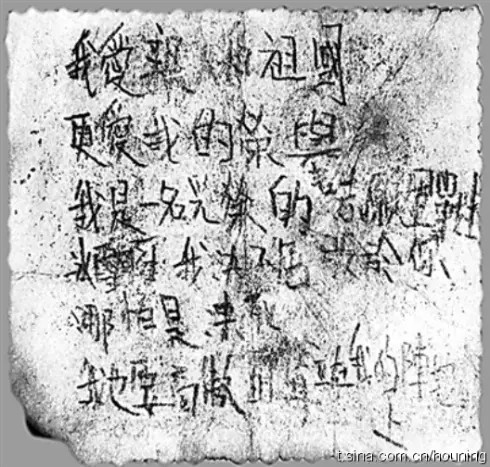 我愛親 祖國
更愛我的榮譽
我是一名光榮的志願
冰雪啊我決不屈 你
哪怕是凍死
我也要高傲 我的陣地
上
t.sina.com.cn/houning